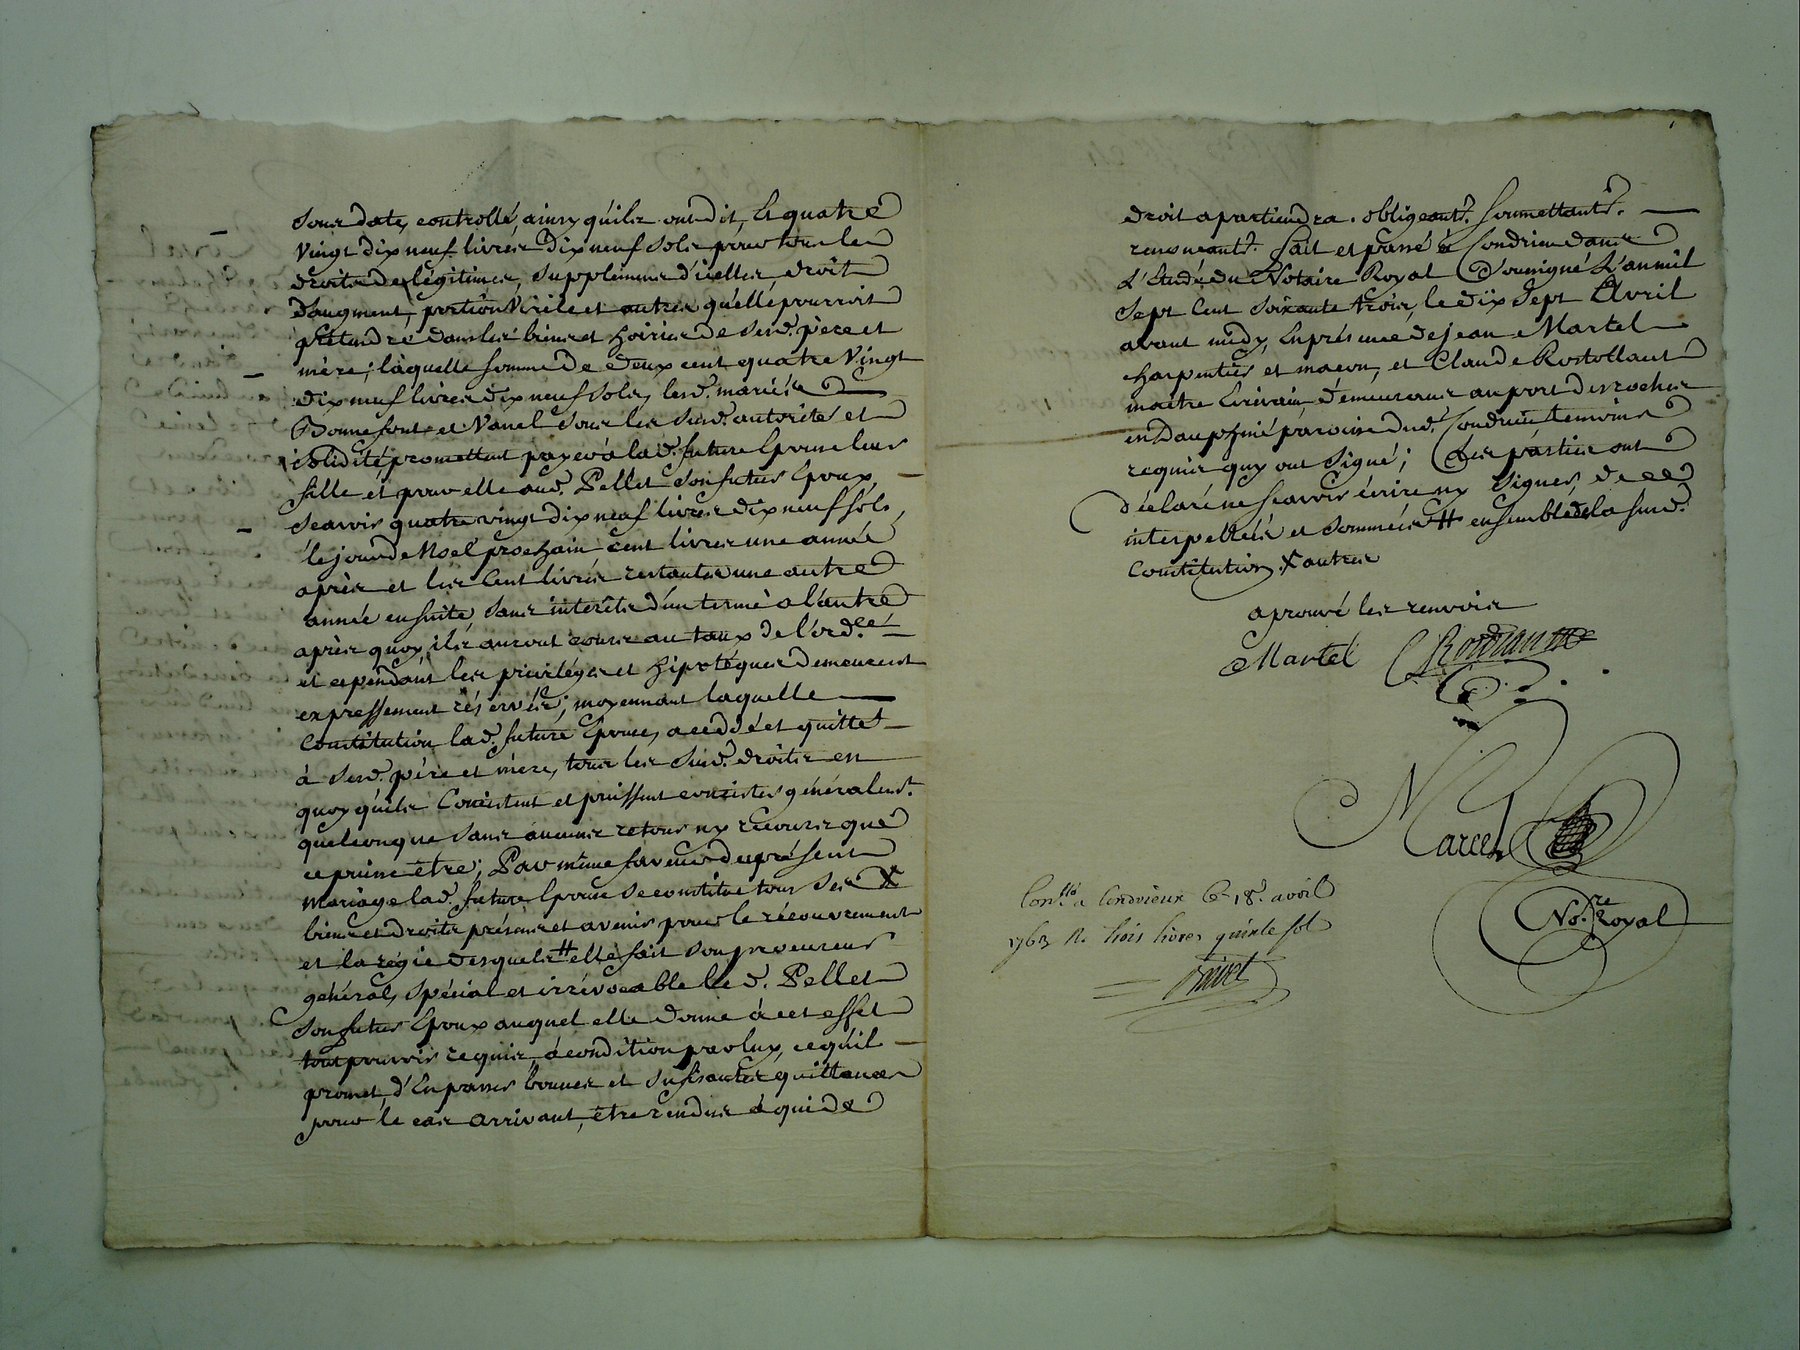 sous date, controllé, ainsy quils ont dit, Et quatre
vingt dix neuf livres dix neuf sols pour tous les
droits de légitime, supplement d'icelles droit
d'augment, portion virile et autres qu'elle pourroit
prétendre dans les biens et hoiries de sesd. père et
mère; laquelle somme de deux cent quatre vingt
dix neuf livres dix neuf sols, lesd. mariés
Bonnefont et Vanel sous les susd. autorités et
solidité promettent payer à lad. future Epouse leur
fille et pour elle aud. Pellet son futur Epoux,
scavoir quatre vingt dix neuf livres dix neuf sols,
le jour de Noel prochain cent livres une année
après et les cent livres restantes une autre
année ensuite, sans interêts d'un terme a l'autre
après quoy, ils auront cours au taux de l'ord.ce
et cependant les privilèges et hipotéques demeurent
expressement réservés; moyennant laquelle
constitution lad. future Epouse, a ceddé et quitté
à sesd. père et mère, tous les susd. droits en
quoy quils consistent et puissent concister généralem.t
quelconque sans aucuns retour ny recours que
ce puisse être; Par même faveur du présent
mariage lad. future Epouse se constitue tous ses X
biens et droits présens et avenir pour le récouvrement
et la régie desquels # elle fait son procureur
général, spécial et irrévocable led. Pellet
son futur Epoux auquel elle donne à cet effet
tout pouvoir requis, à condition par luy, ce quil
promet, d'en passer bonnes et sufisantes quittances
pour le cas arrivant, être rendus à qui de
droit apartiendra. obligeants. soumettants.
renonceants. fait et passé à Condrieu dans
L'Etude du Notaire Royal Soussigné L'an mil
sept cent soixante trois, le dix sept Avril
avant midy, En présence de jean Martel
charpentier et macon, et Claude Rostollant
maitre Ecrivain, demeurans au port des roches
en Dauphiné paroisse dud. Condrieu temoins
requis quy ont signé; Les parties ont
déclaré ne scavoir écrire ny signer, de ce
interpellées et sommées # ensemble de la susd.
constitution. X autres
aprouvé les renvois
Martel
Marcel
No.re Royal
Con.llé a Condrieux le 18.e avril
1763 R. trois livres quinze sol